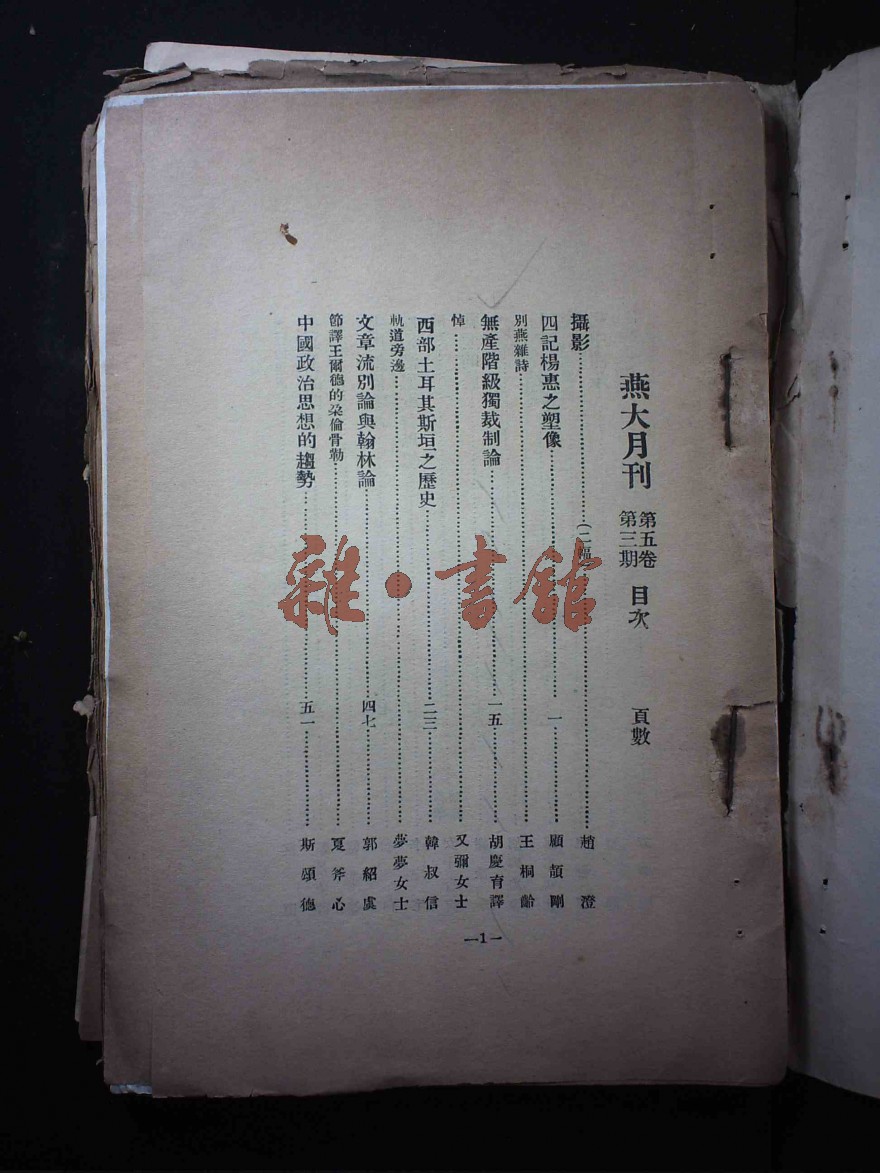 燕大月刊 第五卷 第三期 目次 頁數
攝影……(二幅……趙澄
四記楊惠之塑像……一……顧頡剛
別燕雜詩……王桐齡
無產階級獨裁制論……一五……胡慶育譯
悼……又彌女士
西部土耳其斯垣之歷史……二三……韓叔信
軌道旁邊……夢夢女士
文章流別論與翰林論……四七……郭紹虞
節譯王爾德的朶倫骨勒……夏斧心
中國政治思想的趨勢……五一……斯頌德
—1—
雜·書館